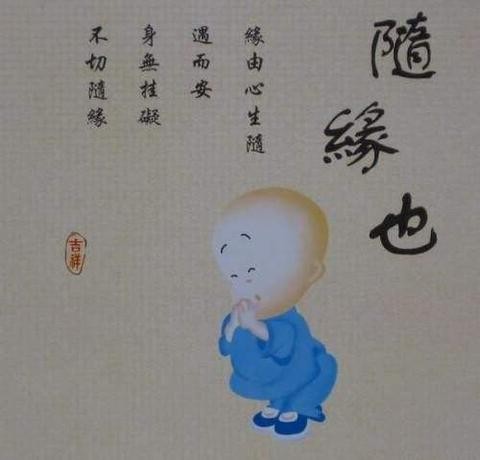 隨緣也
緣由心生隨
遇而安
身無挂礙
不切隨緣
吉祥